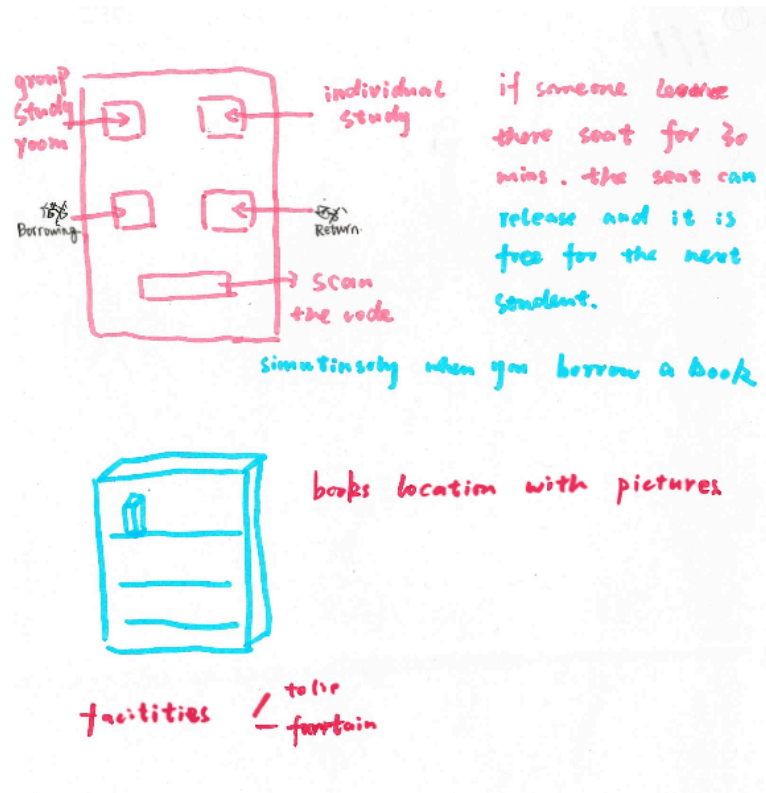 group
study
room
individual
study
Borrowing
Return
scan
the code
if someone leave
there seat for 30
mins. the seat can
release and it is
free for the next
student.
simutinsoly when you borrow a book
books location with pictures
facitities